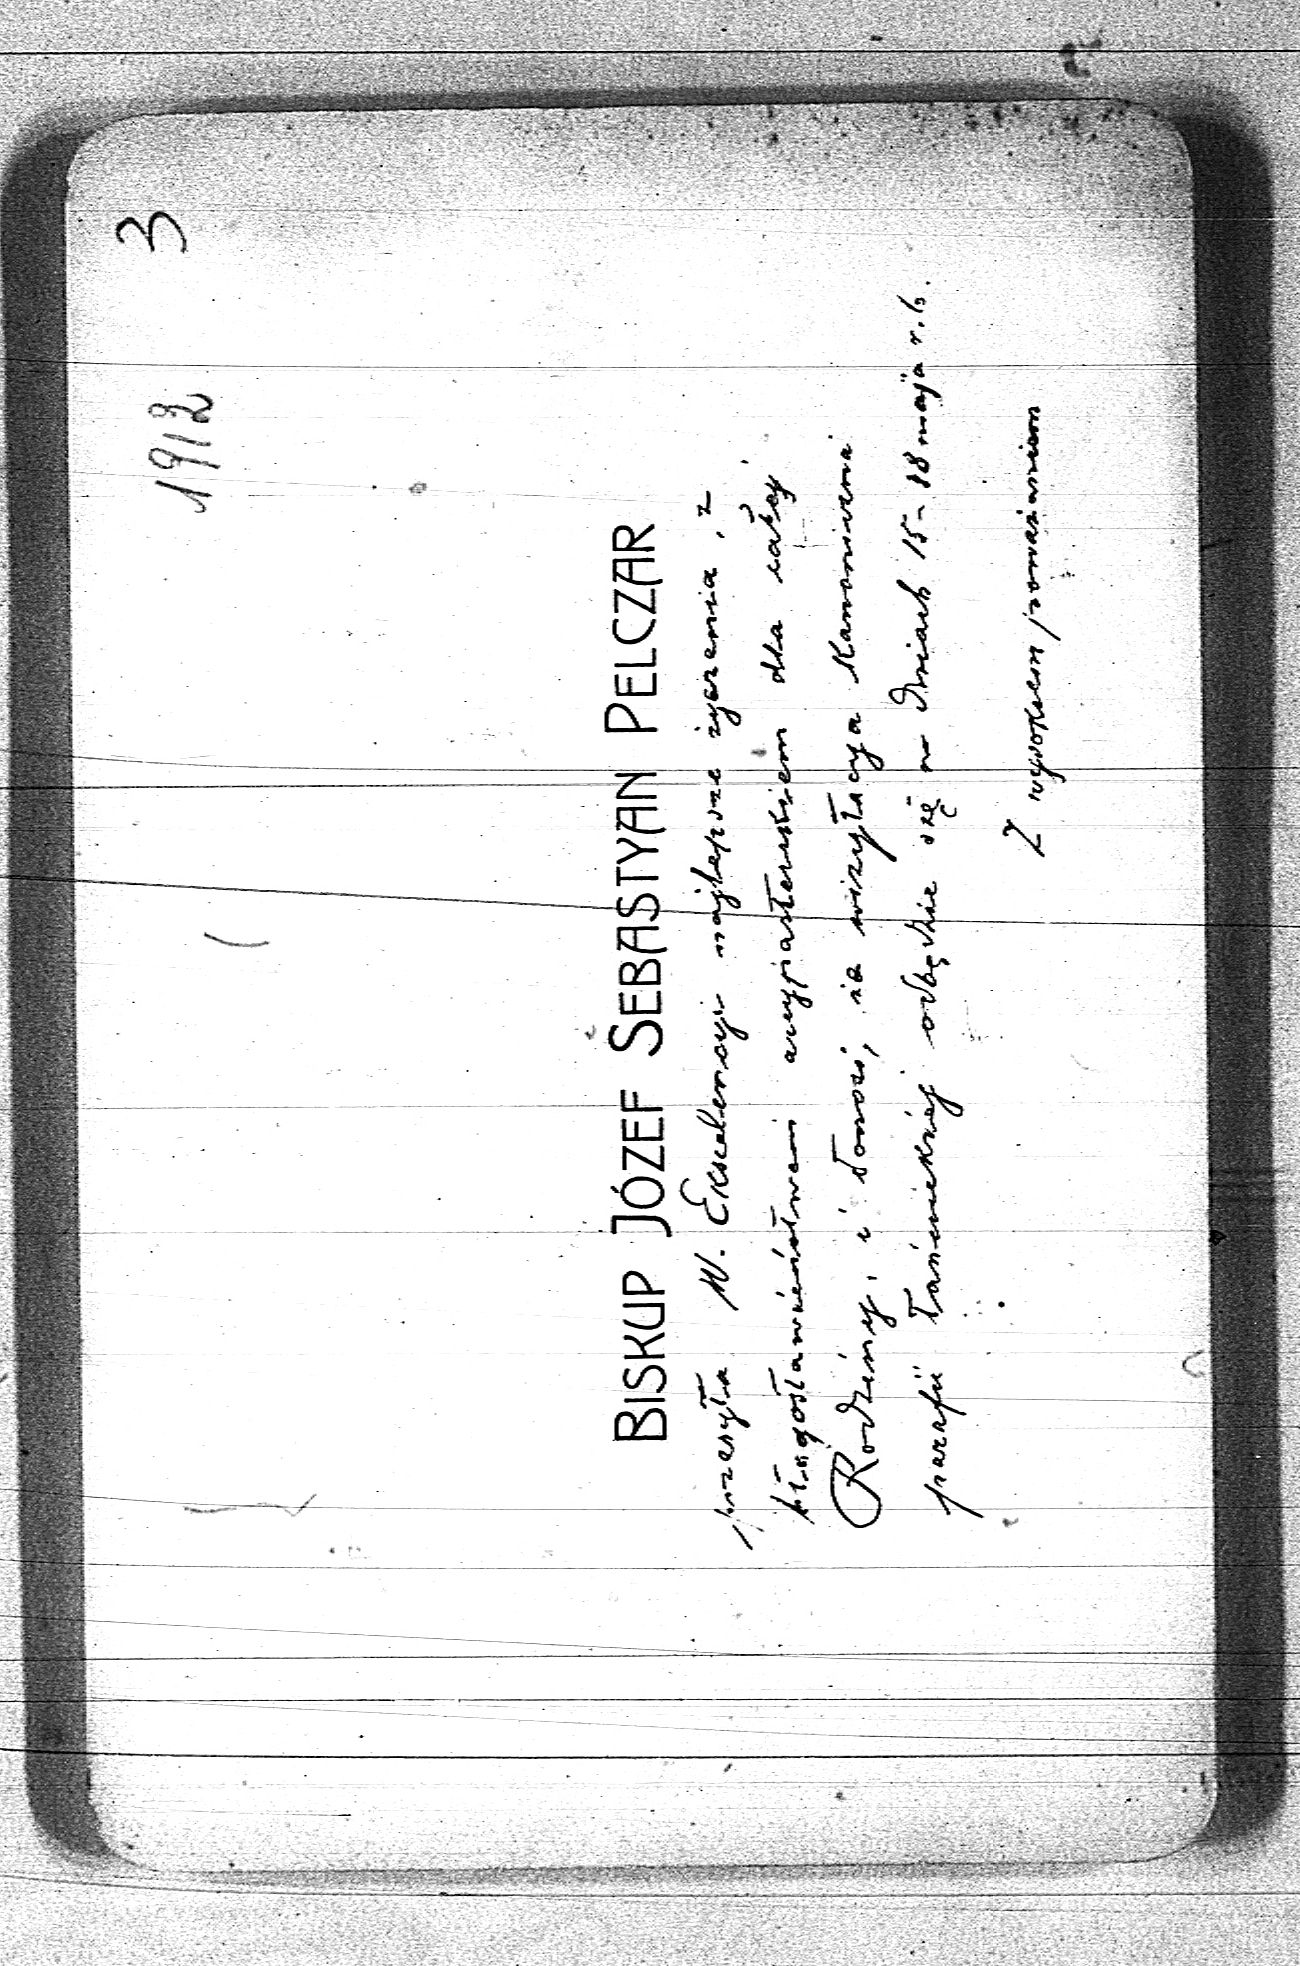 3
1912
BISKUP JÓZEF SEBASTYAN PELCZAR
przesyła W. Ekscelencyi najlepsze życzenia, z
błogosławieństwem arcypasterskiem dla całej
Rodziny, i donosi, że wizytacya kanoniczna
parafii łańcuckiej odbędzie się w dniach 15-18 maja r.b.
Z wysokiem poważaniem